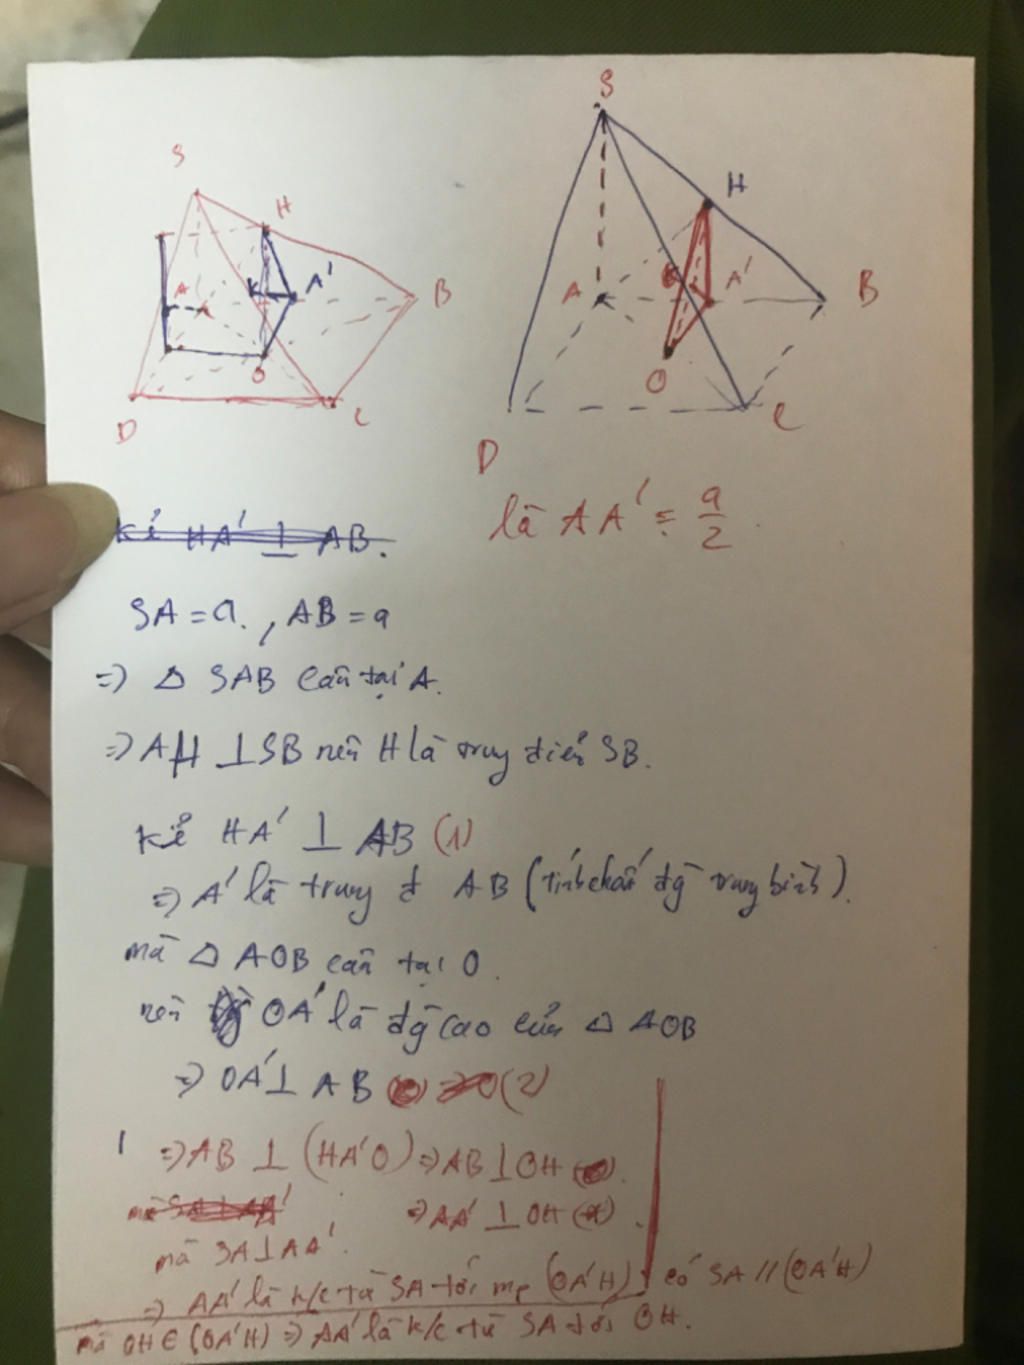 S
H
A'
K
A
B
O
D
C
S
H
K
A'
A
B
O
D
C
là AA' = a/2
kẻ HA' ⊥ AB.
SA = a., AB = a
=> Δ SAB cân tại A.
=> AH ⊥ SB nên H là trung điểm SB.
kẻ HA' ⊥ AB (1)
=> A' là trung đ AB (tính chất đg trung bình).
mà Δ AOB cân tại O.
nên OA' là đg cao của Δ AOB
=> OA' ⊥ AB (2)
=> AB ⊥ (HA'O) => AB ⊥ OH
=> AA' ⊥ OH
mà SA ⊥ AA'.
=> AA' là k/c từ SA tới mp (OA'H) có SA // (OA'H)
mà OH ∈ (OA'H) => AA' là k/c từ SA tới OH.